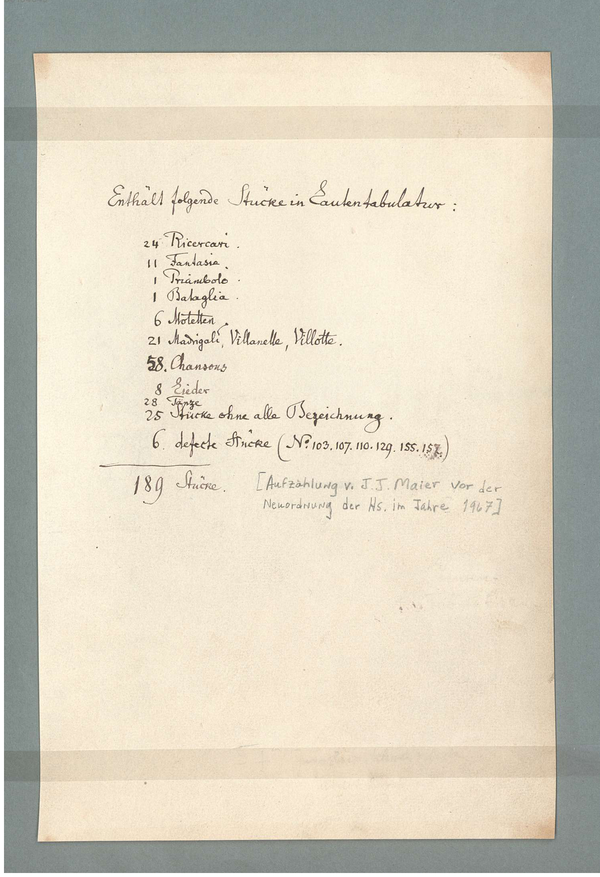 Enthält folgende Stücke in Lautentabulatur :
24 Ricercari .
11 Fantasia
1 Präambolo .
1 Bataglia .
6 Motetten .
21 Madrigali, Villanelle, Villotte .
58. Chansons
8 Lieder
28 Tänze
25 Stücke ohne alle Bezeichnung .
6. defecte Stücke ( No. 103. 107. 110. 129. 155. 157. )
189 Stücke.
[Aufzählung v. J. J. Maier vor der
Neuordnung der Hs. im Jahre 1967]